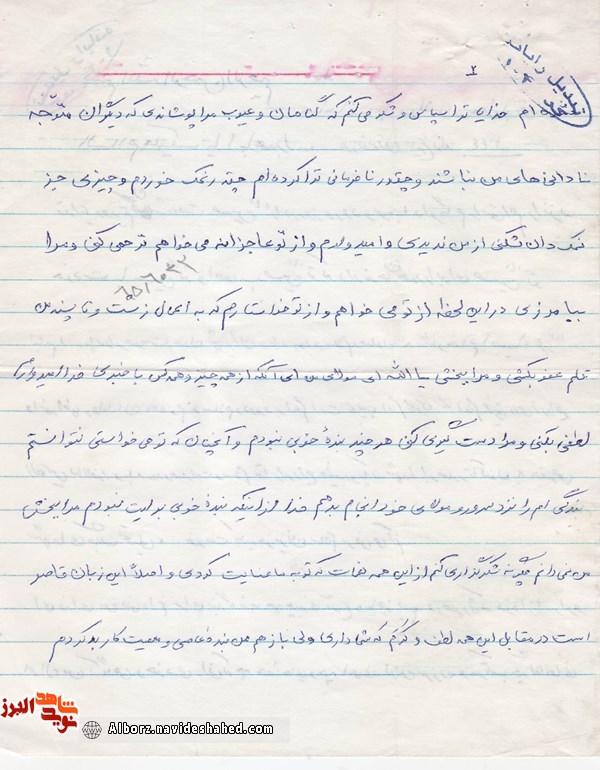 ۲
تبدیل رایانه
شده
ام خدایا ترا سپاس و شکر می کنم که گناهان و عیوب مرا پوشاندی که دیگران متوجه
نادانی های من نباشند و چقدر نافرمانی ترا کرده ام چقدر نمک خوردم و چیزی جز
نمک دان شکنی از من ندیدی و امیدوارم و از تو عاجزانه می خواهم ترحمی کنی و مرا
بیامرزی در این لحظه از تو می خواهم و از تو خواستارم که به اعمال زشت و ناپسند من
۶۵۱۶۰۳۲
قلم عفو بکشی و مرا ببخشی یا الله ای مولای من ای آنکه از همه چیز و همه کس با خبری خدا امیدوارم
لطفی بکنی و مرا دست گیری کنی هر چند بندهٔ خوبی نبودم و آنچنان که تو می خواستی نتوانستم
بندگی ام را نزد سرور و مولای خود انجام بدهم خدا از اینکه بندهٔ خوبی برایت نبودم مرا ببخش
من نمی دانم چگونه شکرگزاری کنم از این همه نعمات که تو به ما عنایت کردی و اصلاً این زبان قاصر
است در مقابل این همه لطف و کرم که شما داری ولی باز هم من بنده عاصی و معصیت کار بد کردم
شاهد
نوید
البرز
Alborz.navideshahed.com